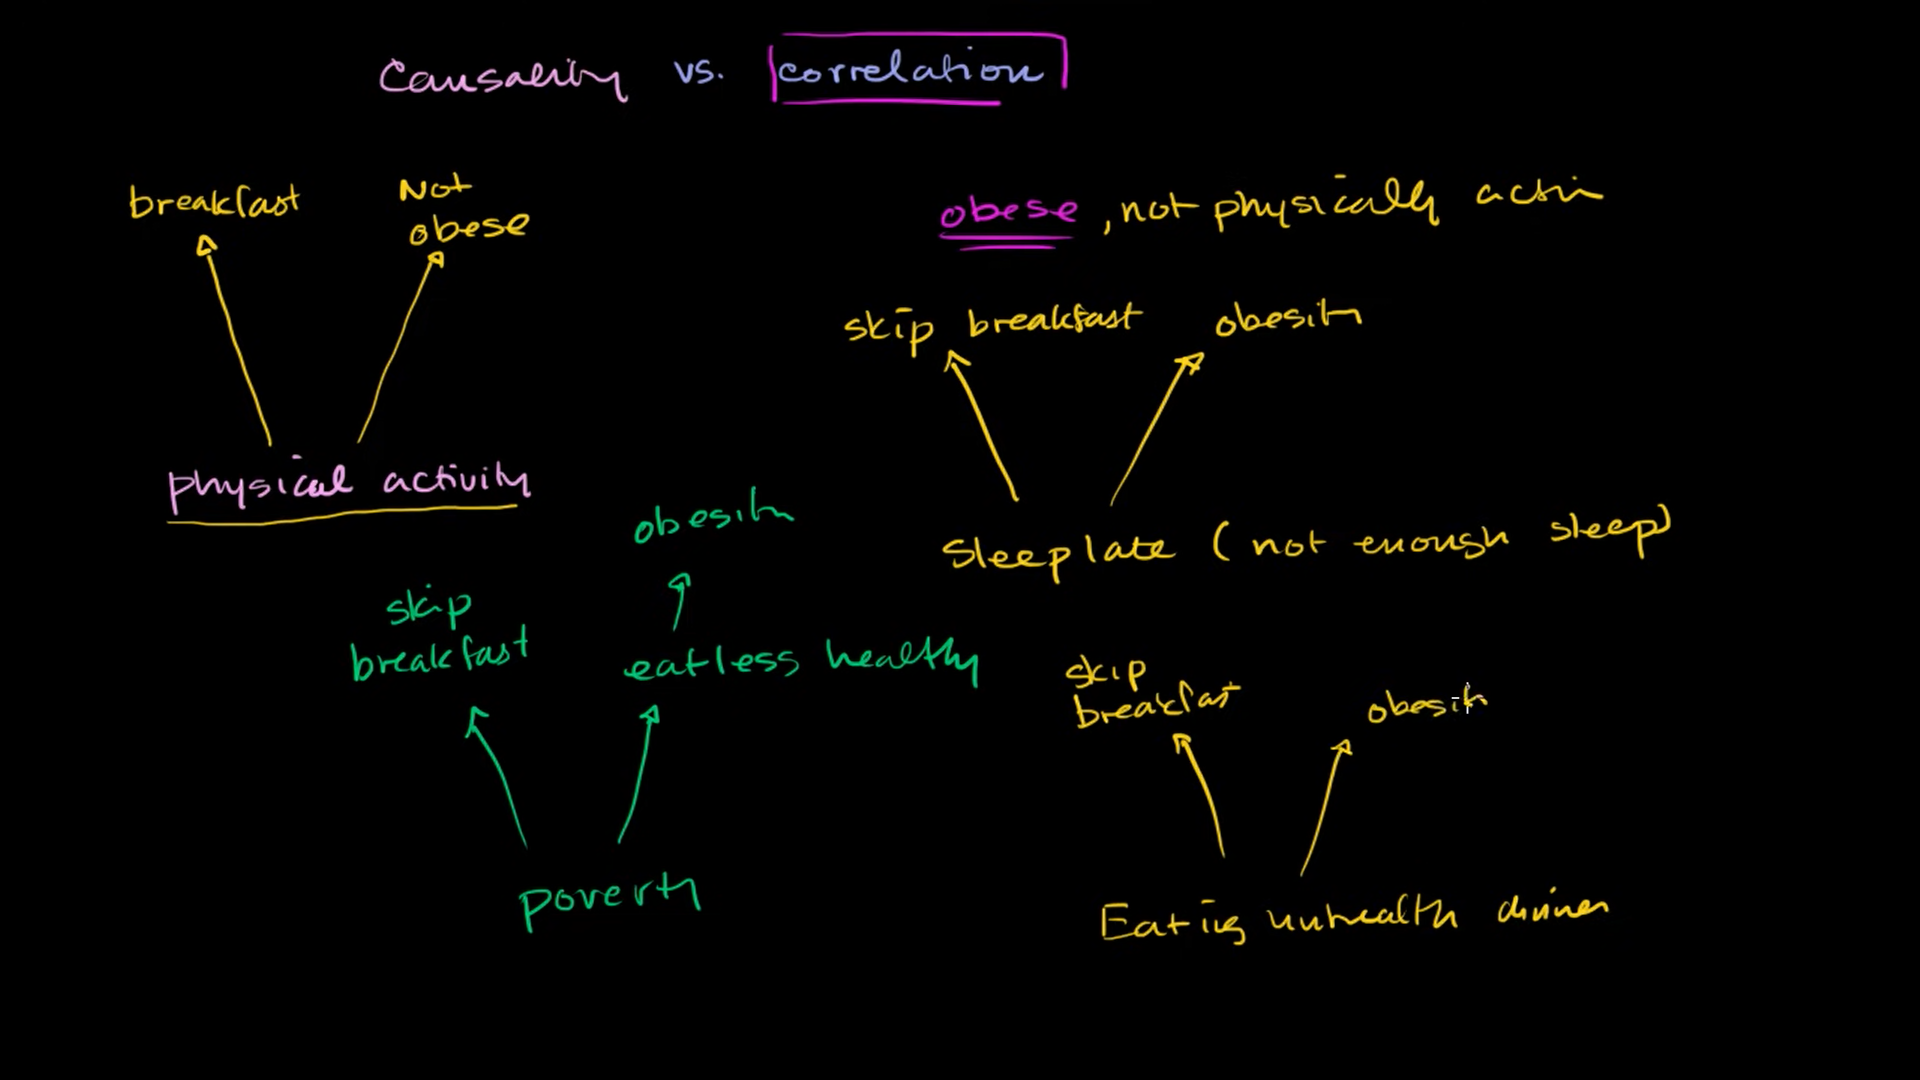 Causality vs. correlation
breakfast
Not
obese
physical activity
obese, not physically activ
skip breakfast obesity
Sleep late (not enough sleep)
obesity
skip
breakfast
eat less healthy
poverty
skip
breakfast
obesity
Eating unhealthy dinner